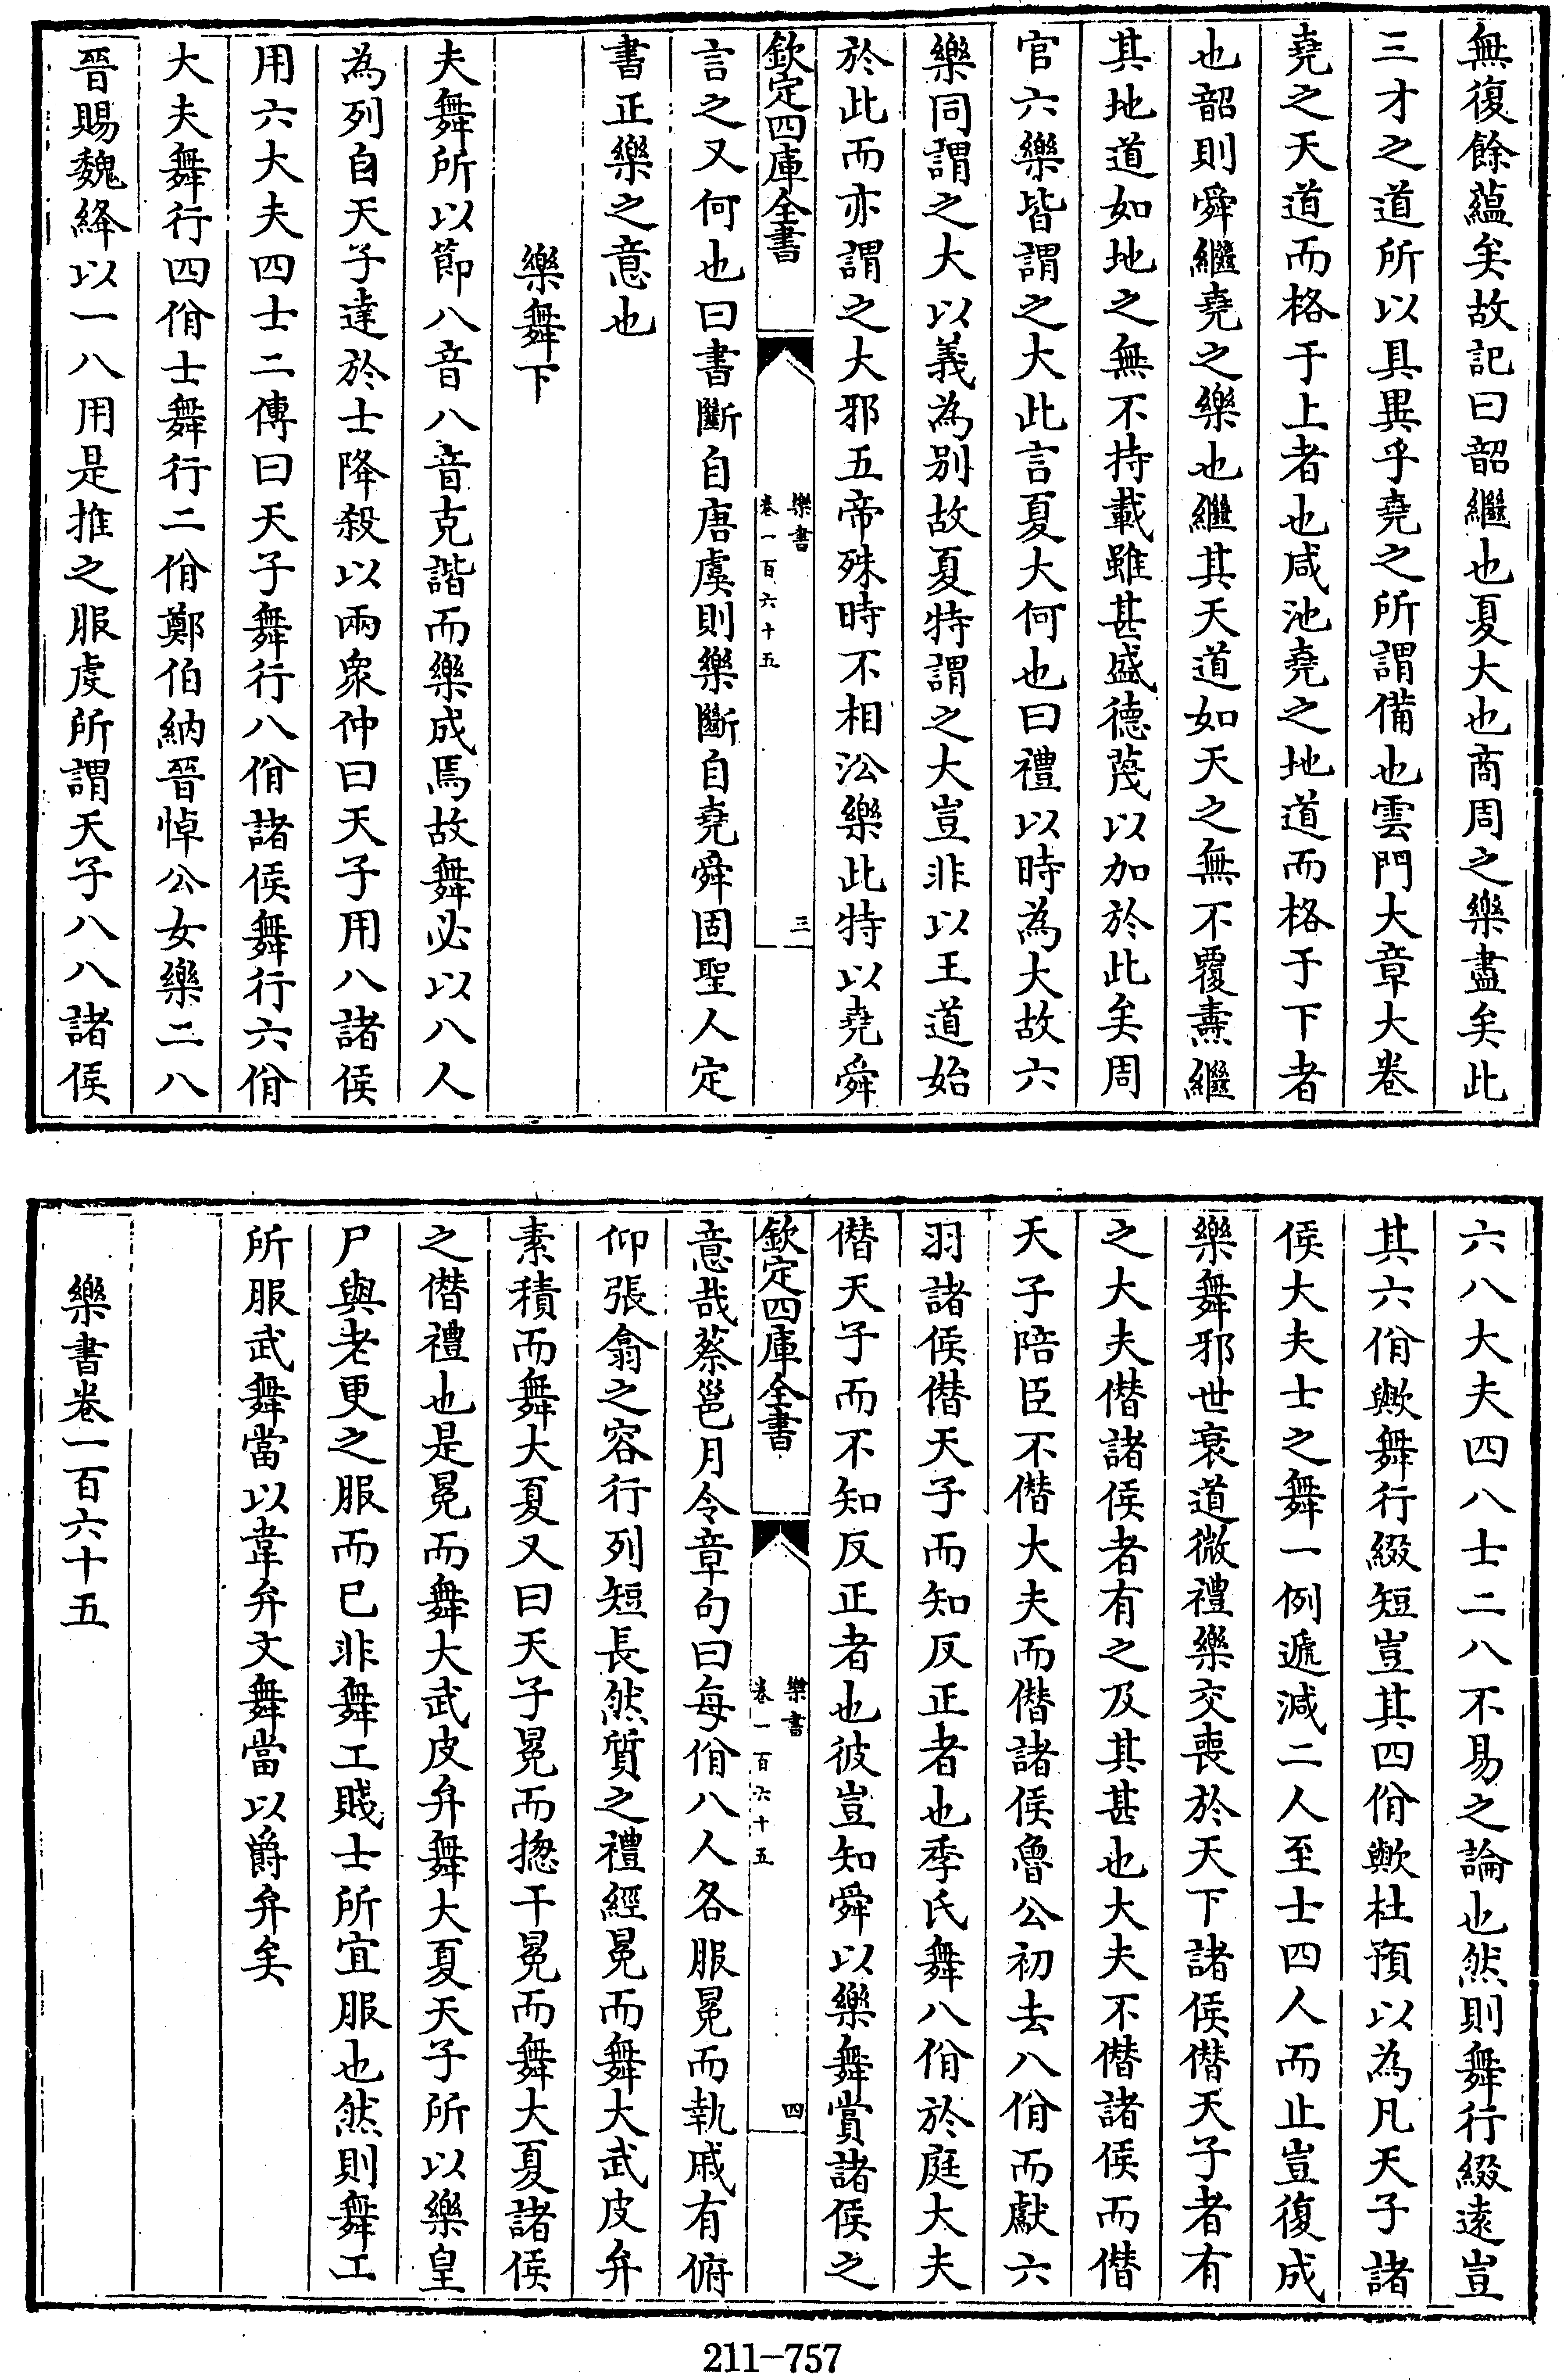 無復餘蘊矣故記曰韶繼也夏大也商周之樂盡矣此
三才之道所以具異乎堯之所謂備也雲門大章大卷
堯之天道而格于上者也咸池堯之地道而格于下者
也韶則舜繼堯之樂也繼其天道如天之無不覆燾繼
其地道如地之無不持載雖甚盛德蔑以加於此矣周
官六樂皆謂之大此言夏大何也曰禮以時為大故六
樂同謂之大以義為別故夏特謂之大豈非以王道始
於此而亦謂之大邪五帝殊時不相沿樂此特以堯舜
欽定四庫全書
樂書
卷一百六十五
三
言之又何也曰書斷自唐虞則樂斷自堯舜固聖人定
書正樂之意也
樂舞下
夫舞所以節八音八音克諧而樂成焉故舞必以八人
為列自天子達於士降殺以兩衆仲曰天子用八諸侯
用六大夫四士二傳曰天子舞行八佾諸侯舞行六佾
大夫舞行四佾士舞行二佾鄭伯納晉悼公女樂二八
晉賜魏絳以一八用是推之服虔所謂天子八八諸侯
六八大夫四八士二八不易之論也然則舞行綴遠豈
其六佾歟舞行綴短豈其四佾歟杜預以為凡天子諸
侯大夫士之舞一例遞減二人至士四人而止豈復成
樂舞邪世衰道微禮樂交喪於天下諸侯僭天子者有
之大夫僭諸侯者有之及其甚也大夫不僭諸侯而僭
天子陪臣不僭大夫而僭諸侯魯公初去八佾而獻六
羽諸侯僭天子而知反正者也季氏舞八佾於庭大夫
僭天子而不知反正者也彼豈知舜以樂舞賞諸侯之
欽定四庫全書
樂書
卷一百六十五
四
意哉蔡邕月令章句曰每佾八人各服冕而執戚有俯
仰張翕之容行列短長然質之禮經冕而舞大武皮弁
素積而舞大夏又曰天子冕而揔干冕而舞大夏諸侯
之僭禮也是冕而舞大武皮弁舞大夏天子所以樂皇
尸與老更之服而已非舞工賤士所宜服也然則舞工
所服武舞當以韋弁文舞當以爵弁矣
樂書卷一百六十五
211-757